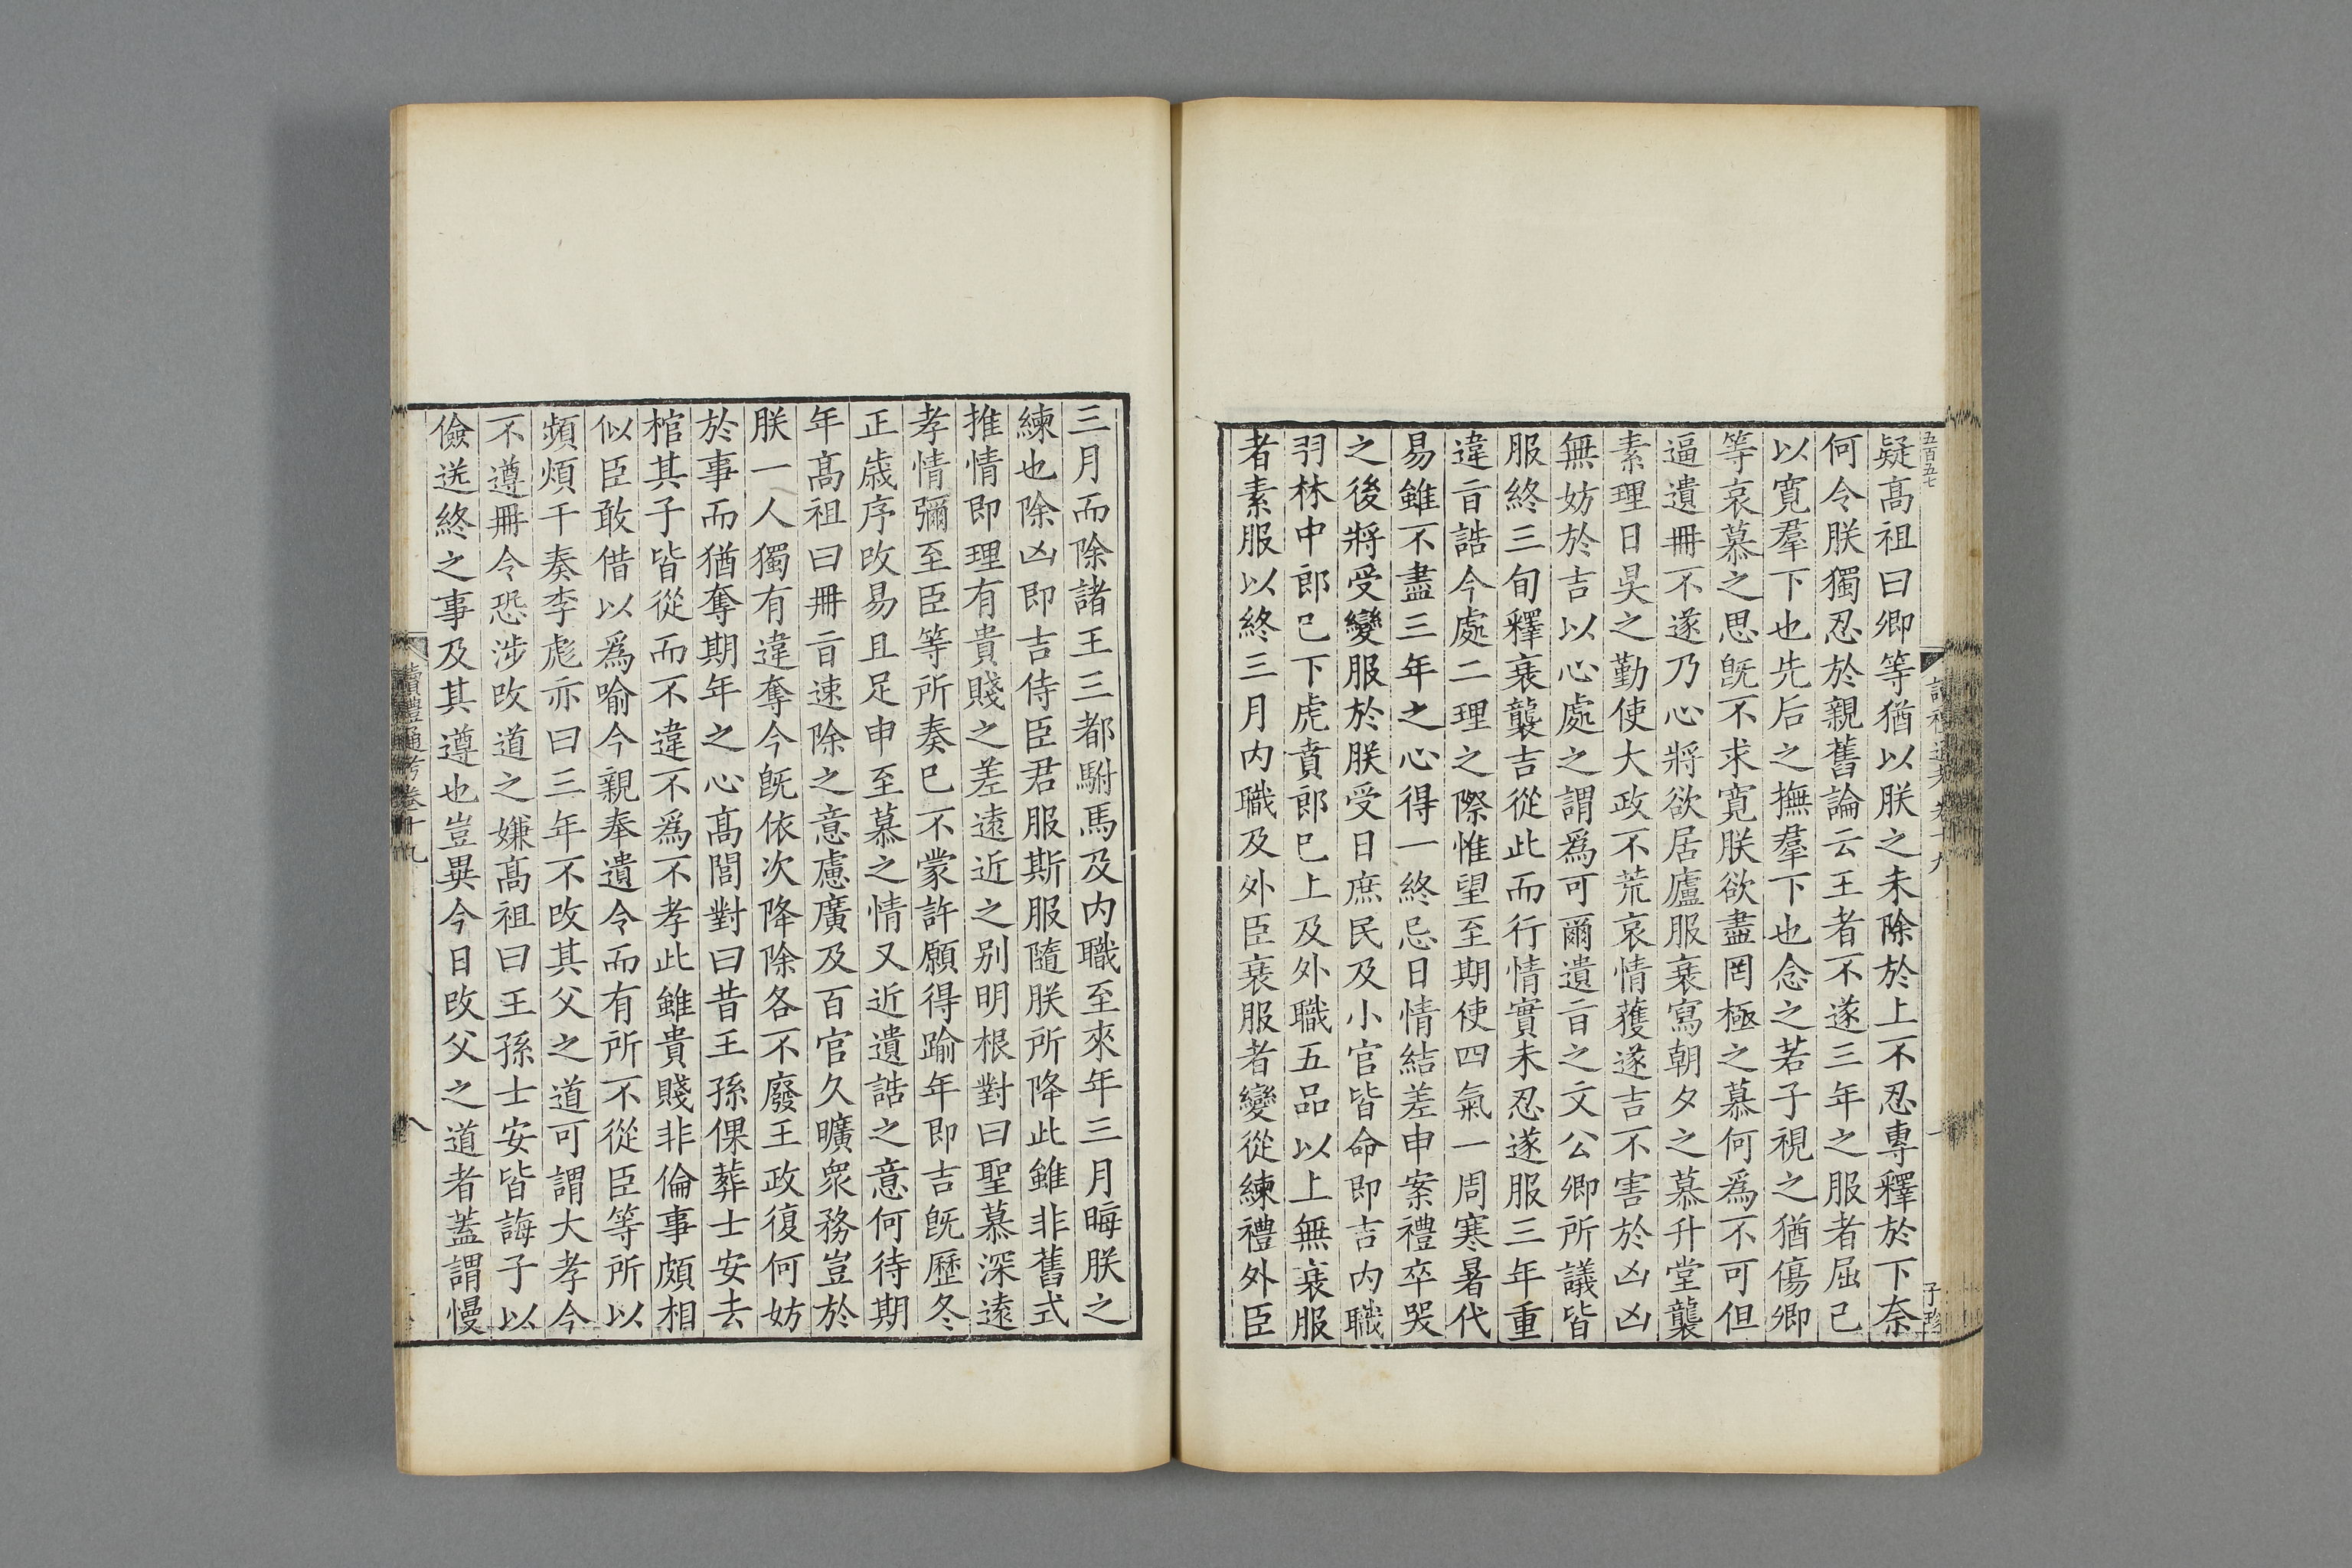 五百五七
疑高祖曰卿等猶以朕之未除於上不忍專釋於下奈
何令朕獨忍於親舊論云王者不遂三年之服者屈己
以寬羣下也先后之撫羣下也念之若子視之猶傷卿
等哀慕之思旣不求寛朕欲盡罔極之慕何爲不可但
逼遺冊不遂乃心將欲居廬服衰寫朝夕之慕升堂襲
素理日昃之勤使大政不荒哀情獲遂吉不害於凶凶
無妨於吉以心處之謂爲可爾遺㫖之文公卿所議皆
服終三旬釋衰襲吉從此而行情實未忍遂服三年重
違㫖誥今處二理之際惟望至期使四氣一周寒暑代
易雖不盡三年之心得一終忌日情結差申案禮卒哭
之後將受變服於朕受日庶民及小官皆命即吉内職
羽林中郎已下虎賁郎已上及外職五品以上無衰服
者素服以終三月内職及外臣衰服者變從練禮外臣
三月而除諸王三都駙馬及内職至來年三月晦朕之
練也除凶即吉侍臣君服斯服隨朕所降此雖非舊式
推情即理有貴賤之差遠近之别明根對曰聖慕深遠
孝情彌至臣等所奏已不蒙許願得踰年即吉旣歷冬
正歲序改易且足申至慕之情又近遺誥之意何待期
年高祖曰冊㫖速除之意慮廣及百官久曠衆務豈於
朕一人獨有違奪今旣依次降除各不廢王政復何妨
於事而猶奪期年之心高閭對曰昔王孫倮葬士安去
棺其子皆從而不違不爲不孝此雖貴賤非倫事頗相
似臣敢借以爲喻今親奉遺令而有所不從臣等所以
頻煩干奏李彪亦曰三年不改其父之道可謂大孝今
不遵冊令恐涉改道之嫌高祖曰王孫士安皆誨子以
儉送終之事及其遵也豈異今日改父之道者蓋謂慢
讀禮通考卷十九
八